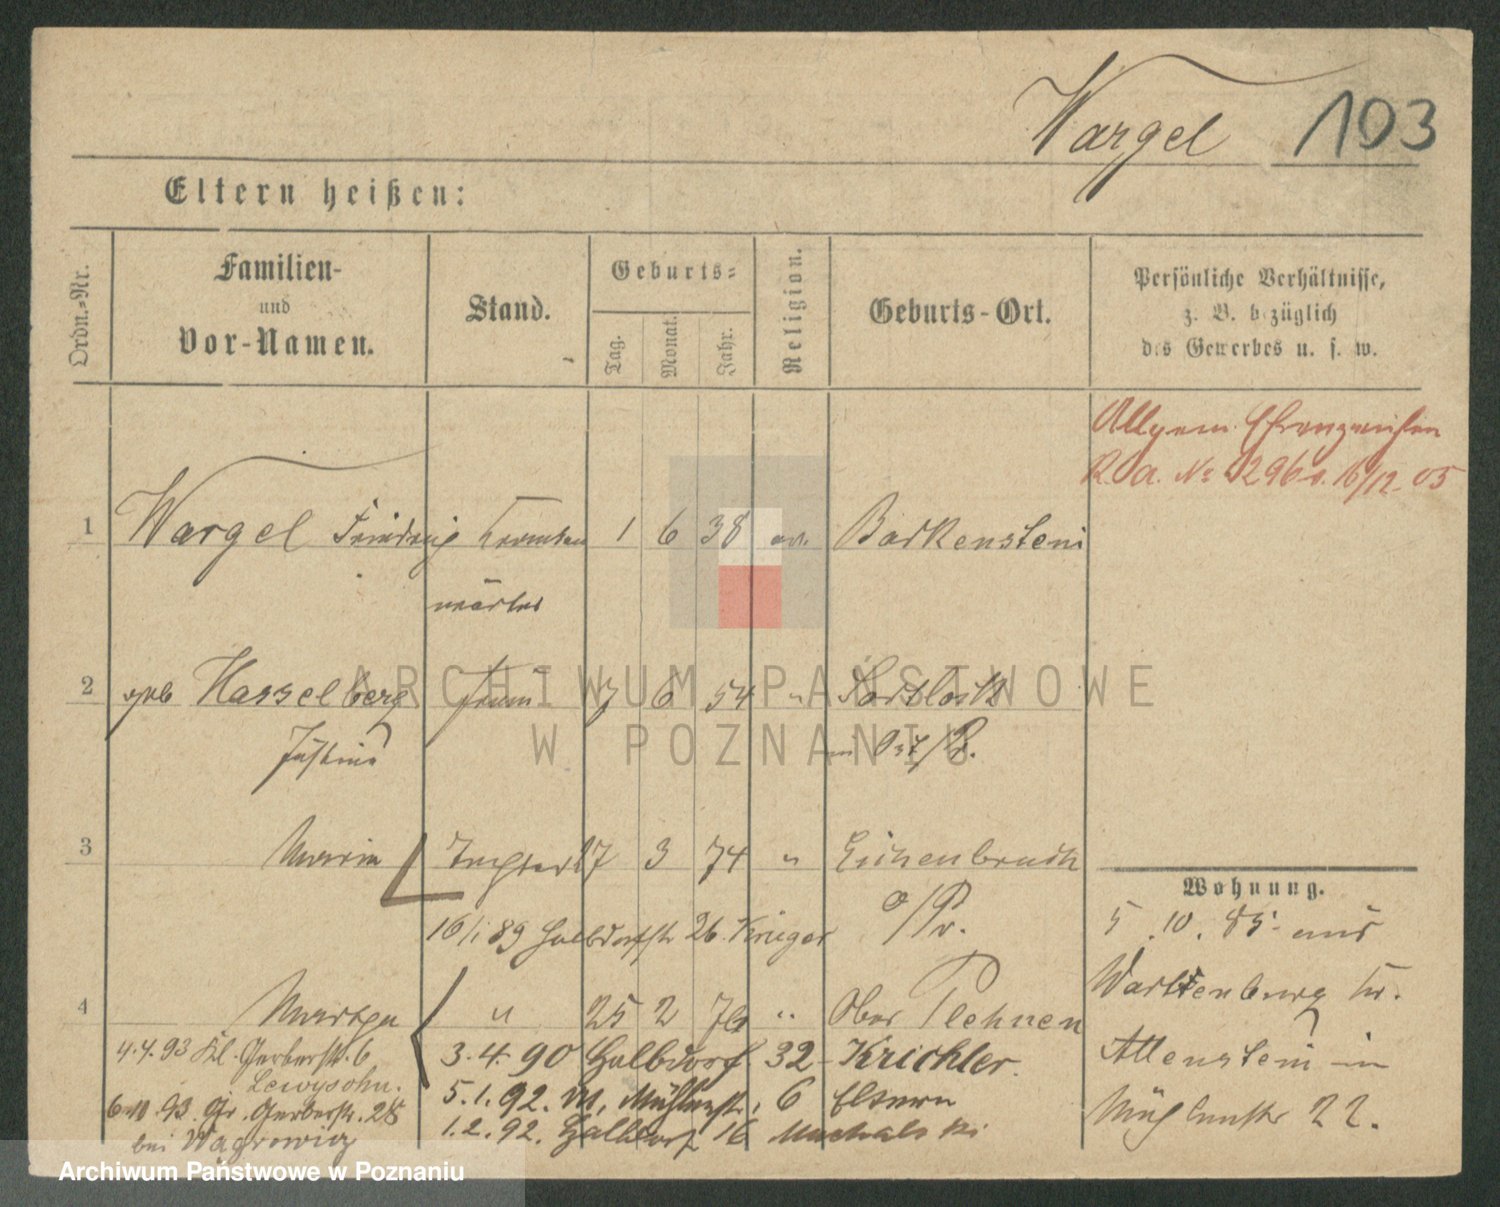 Wargel 103
Eltern heißen:
Ordn.-Nr.
Familien-
und
Vor-Namen.
Stand.
Geburts-
Tag.
Monat.
Jahr.
Religion.
Geburts-Ort.
Persönliche Verhältnisse,
z. B. bezüglich
des Gewerbes u. s. w.
Allgem. Ehrenzeichen
R. A. No 296 v. 16/12. 05
1 Wargel Friedrich 1 6 38 ev. Bartenstein
wärter
2 geb Hasselberg Frau 7 6 54 "
Justine
3 Maria Tochter 17 3 74 " Eichenbruch
O/Pr.
16/1 89 Halbdorfstr 26. Krüger
4 Martha " 25 2 76 " Ober Plehnen
4.4.93 Kl. Gerberstr. 6
Lewysohn.
93. Gr. Gerberstr. 28
bei Wągrowicz
3.4.90 Halbdorf. 32 Krichler.
5.1.92. Mühlenstr. 6 Eltern
1.2.92. Halbdorf 16 Michalski
Wohnung.
5.10.85 aus
Wartenburg Kr.
Allenstein in
Mühlenstr 22.
ARCHIWUM PAŃSTWOWE
W POZNANIU
Archiwum Państwowe w Poznaniu